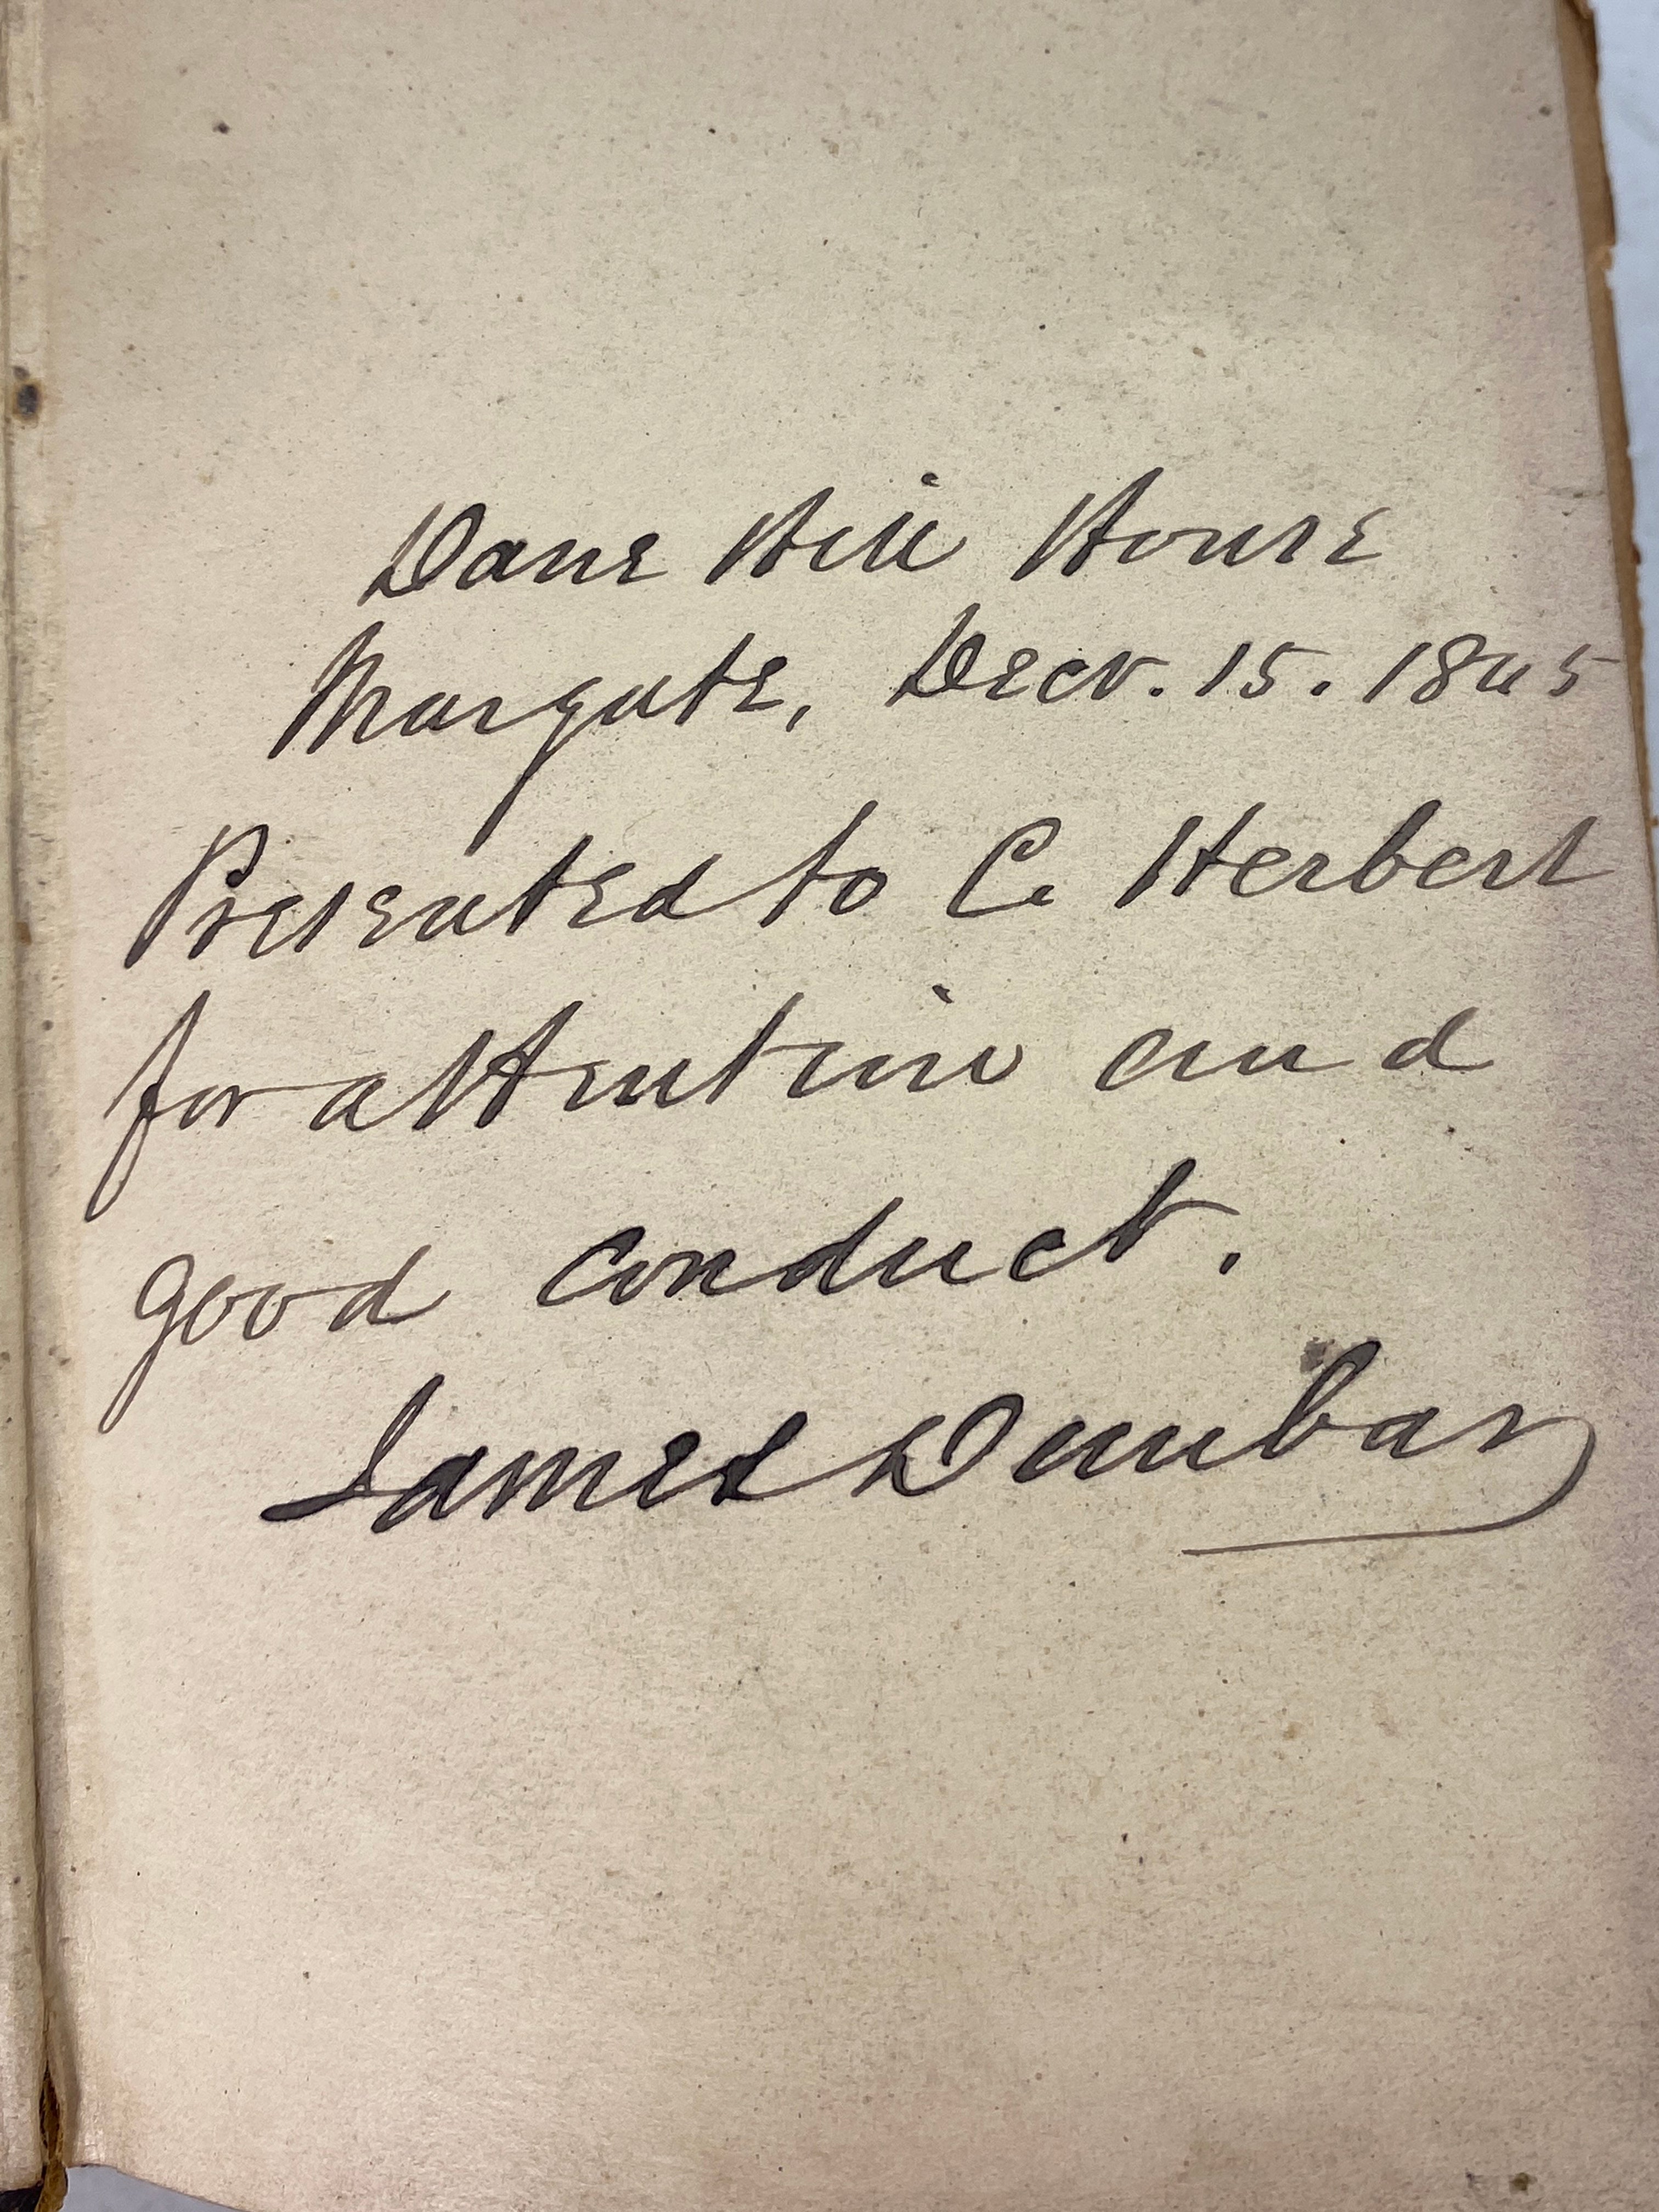 Dane Hill House
Margate, Decr. 15. 1865
Presented to C. Herbert
for attention and
good conduct.
James Dunbar